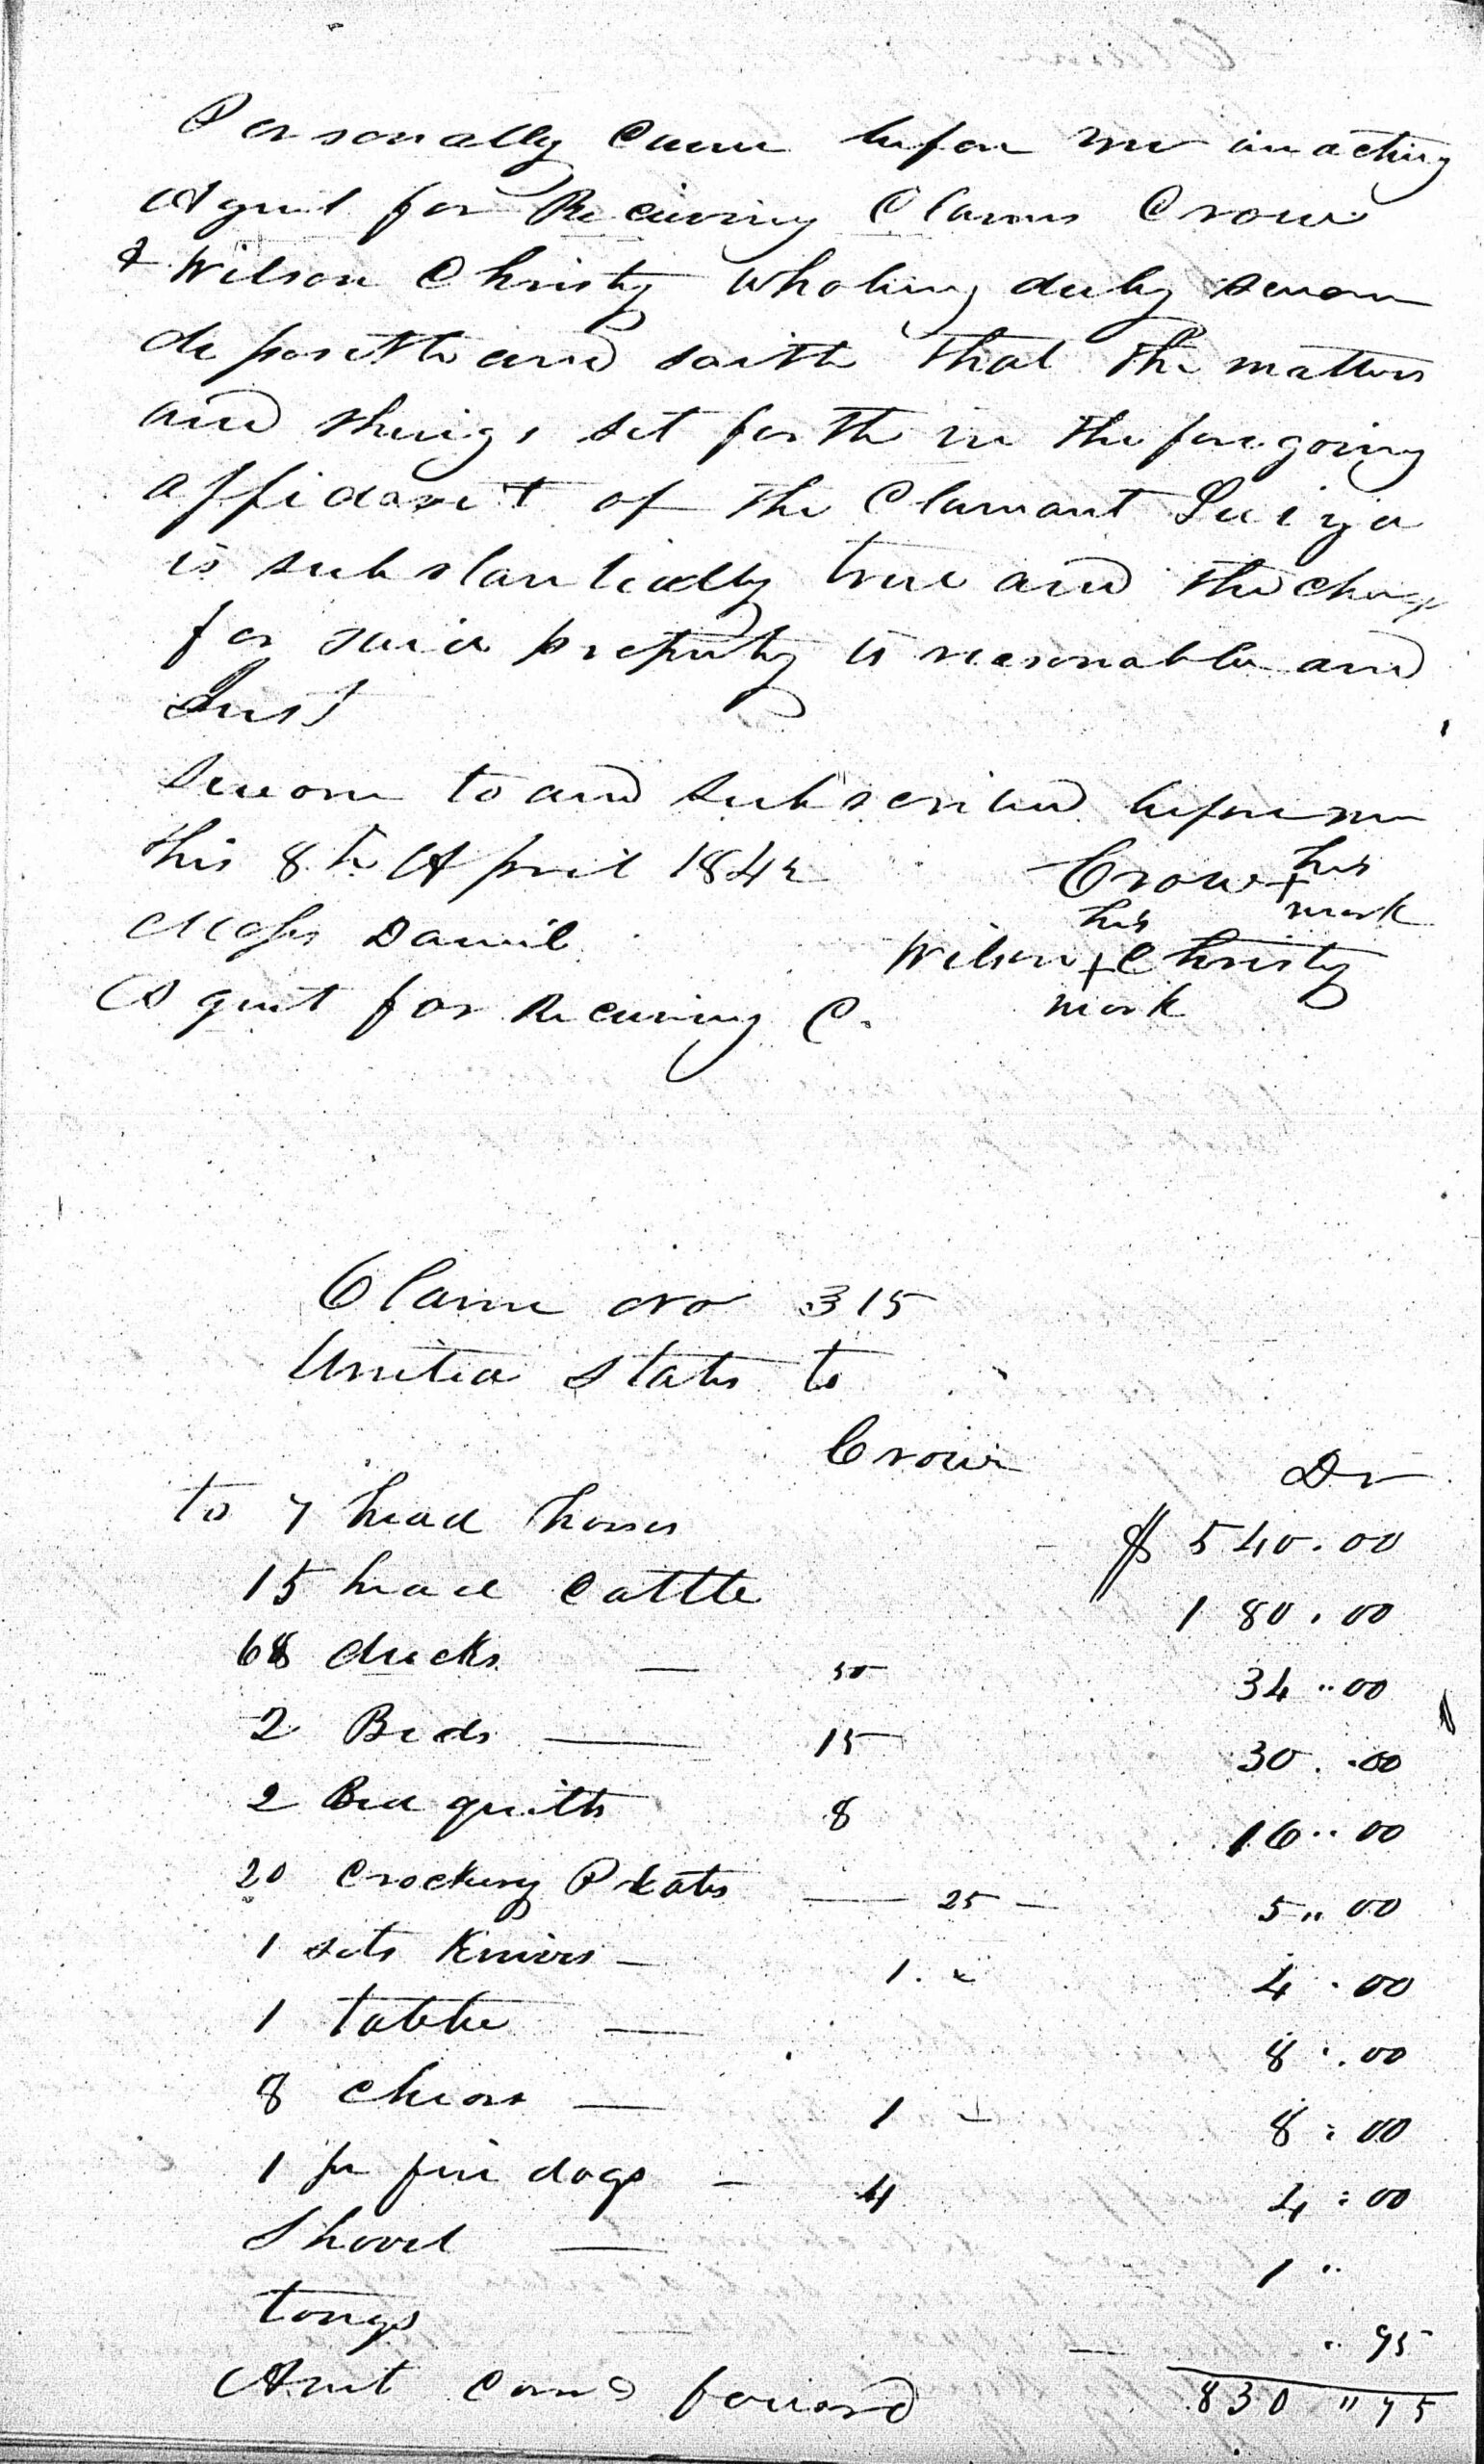 Personally Came before me an acting
Agent for Receiving Claims Crow
& Wilson Christy who being duly sworn
deposeth and saith that the matters
and things set forth in the foregoing
affidavit of the Clamant
is substantially true and the charge
for said property is reasonable and
Just
Sworn to and subscribed before me
this 8th April 1842
Crow his
x
mark
Moses Daniel
his
Wilson x Christy
mark
Agent for Receiving C.
Claim No 315
United States to
Crow Dr
to 7 head horses $ 540.00
15 head Cattle 180.00
68 ducks — 50 34 " 00
2 Beds — 15 30 . 00
2 Bed quilts 8 16 " 00
20 Crockery Plates — 25 — 5 " 00
1 sets Knives — 1. 4 . 00
1 table — 8 . 00
8 Chears — 1 8 : 00
1 pr fire dogs — 4 4 : 00
Shovel — 1 "
tongs — " 75
Amt Card forward 830 " 75